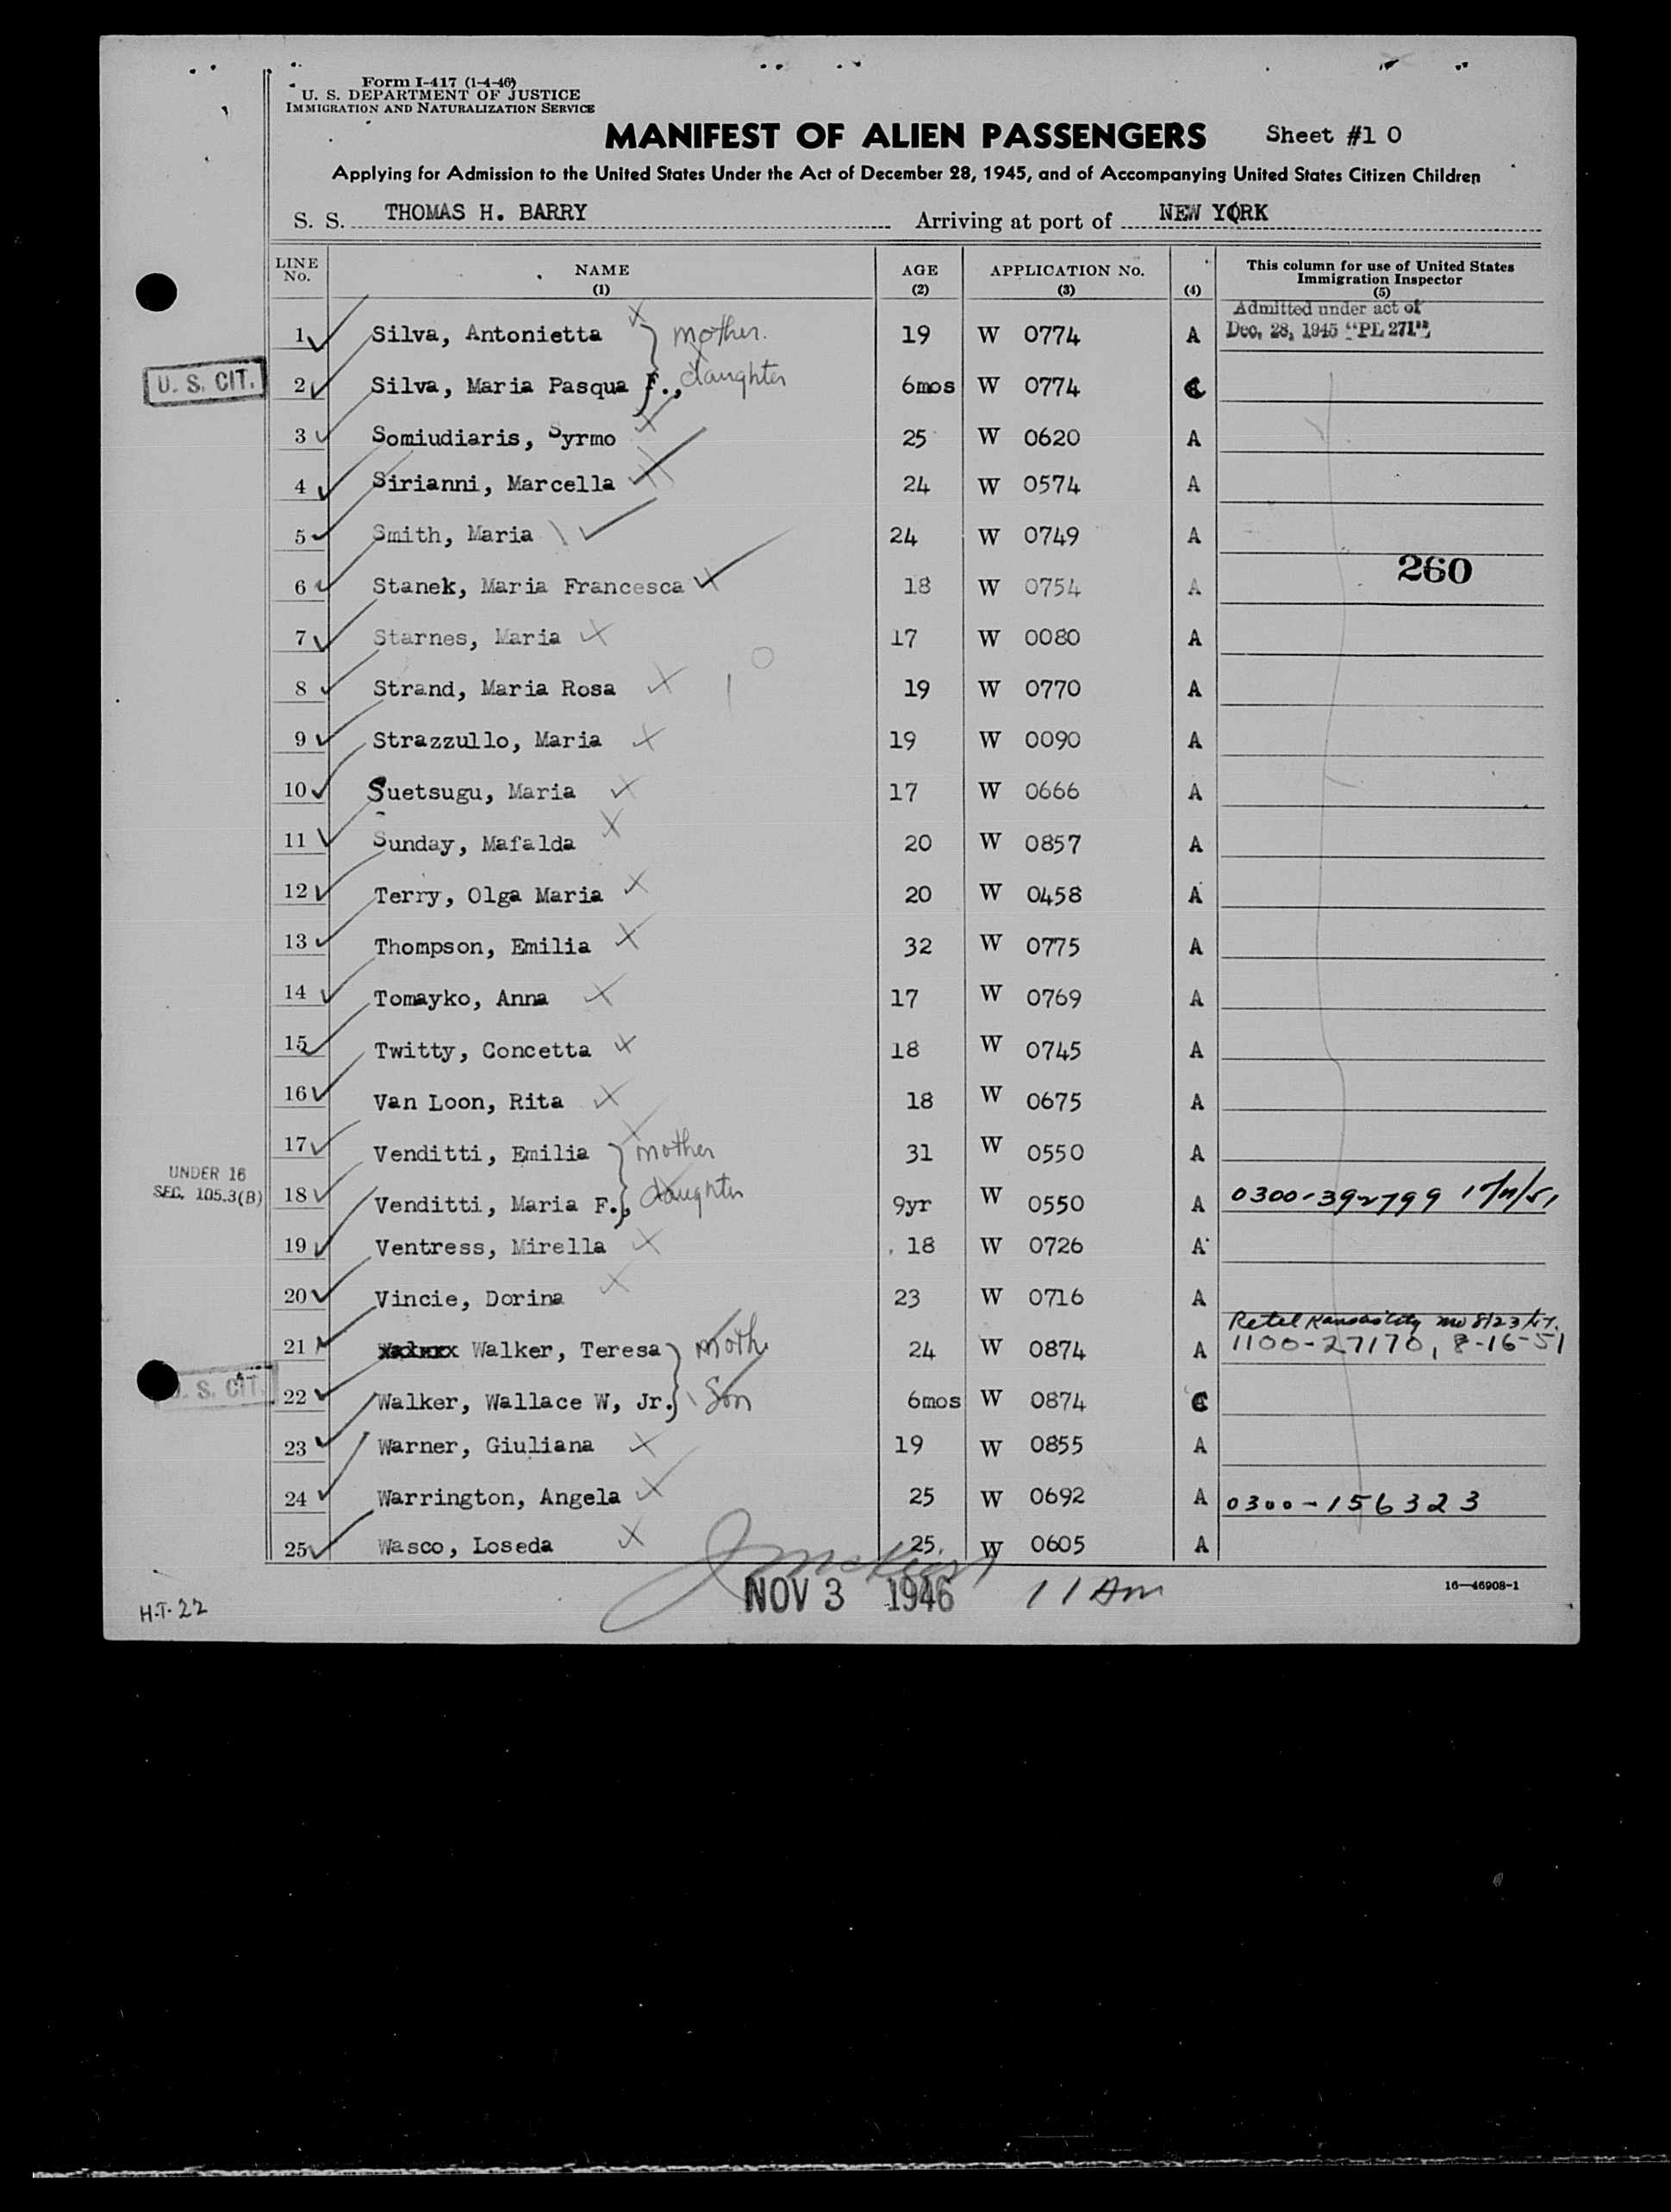 Form I-417 (1-4-46)
U. S. DEPARTMENT OF JUSTICE
IMMIGRATION AND NATURALIZATION SERVICE
MANIFEST OF ALIEN PASSENGERS Sheet #1 0
Applying for Admission to the United States Under the Act of December 28, 1945, and of Accompanying United States Citizen Children
S. S. THOMAS H. BARRY Arriving at port of NEW YORK
LINE No. NAME (1) AGE (2) APPLICATION No. (3) (4) This column for use of United States Immigration Inspector (5)
Admitted under act of
1 Silva, Antonietta mother. 19 W 0774 A Dec. 28, 1945 "PL 271"
U. S. CIT. 2 Silva, Maria Pasqua F., daughter 6mos W 0774 C
3 Somiudiaris, Syrmo 25 W 0620 A
4 Sirianni, Marcella 24 W 0574 A
5 Smith, Maria 24 W 0749 A
260
6 Stanek, Maria Francesca 18 W 0754 A
7 Starnes, Maria 17 W 0080 A
8 Strand, Maria Rosa 19 W 0770 A
9 Strazzullo, Maria 19 W 0090 A
10 Suetsugu, Maria 17 W 0666 A
11 Sunday, Mafalda 20 W 0857 A
12 Terry, Olga Maria 20 W 0458 A
13 Thompson, Emilia 32 W 0775 A
14 Tomayko, Anna 17 W 0769 A
15 Twitty, Concetta 18 W 0745 A
16 Van Loon, Rita 18 W 0675 A
17 Venditti, Emilia mother 31 W 0550 A
UNDER 16
SEC. 105.3(B) 18 Venditti, Maria F., daughter 9yr W 0550 A 0300-392799
19 Ventress, Mirella 18 W 0726 A
20 Vincie, Dorina 23 W 0716 A
Retel Kansas City Mo 8/23/47.
21 Walker, Teresa moth 24 W 0874 A 1100-27170, 8-16-51
U. S. CIT. 22 Walker, Wallace W, Jr. Son 6mos W 0874 C
23 Warner, Giuliana 19 W 0855 A
24 Warrington, Angela 25 W 0692 A 0300-156323
25 Wasco, Loseda 25 W 0605 A
NOV 3 1946 11 Am
16—46908-1
H-T-22